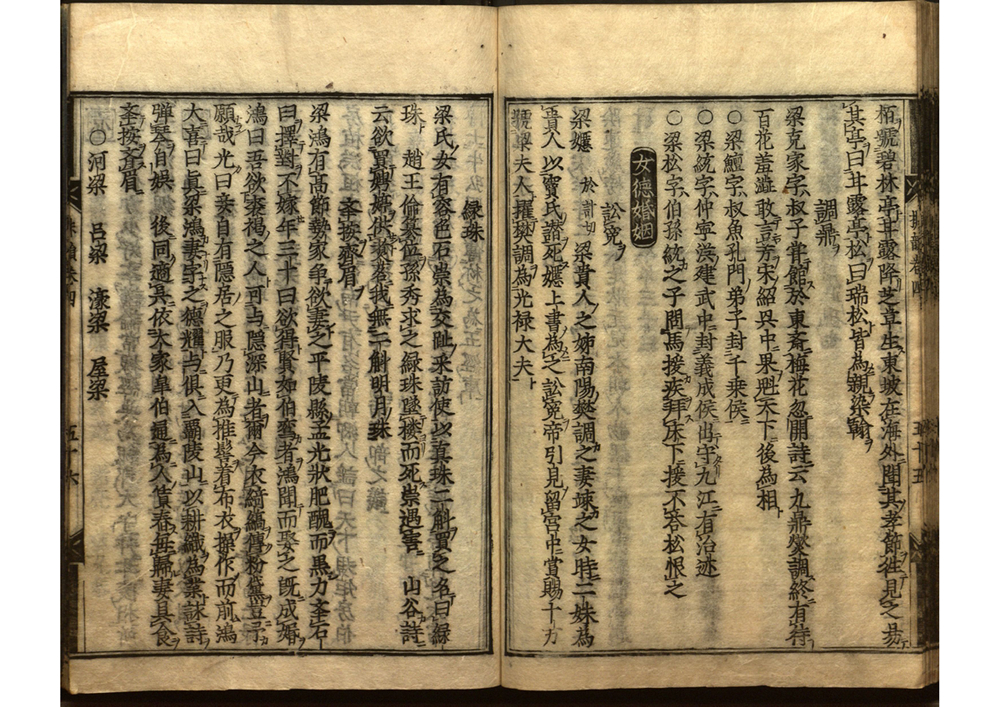 栢號碧林亭甘露降芝草生東坡在海外聞其孝節徃見之昜
其亭曰甘露亭松曰瑞松皆為親染翰
調鼎
梁克家字叔子甞館於東斎梅花忽開詩云九鼎爕調終有待
百花羞澁敢言芳宋紹兴中果魁天下後為相
○梁鱣字叔魚孔門弟子封千乗侯
○梁統字仲寧漢建武中封義成侯出守九江有治迹
○梁松字伯孫統之子問馬援疾拜床下援不荅松恨之
女德婚姻
訟寃
梁嫕 於計切 梁貴人之姊南陽樊調之妻竦之女時二妹為
貴人以竇氏譖死嫕上書為之訟寃帝引見留宮中賞賜千万
號梁夫人擢樊調為光禄大夫
緑珠
梁氏女有容色石崇為交趾采訪使以真珠二斛買之名曰緑
珠 趙王倫簒位孫秀求之緑珠墜楼而死崇遇害 山谷詩
云欲買娉婷供煑茗我無二斛明月珠
夆按齊眉
梁鴻有高節勢家争欲妻之平陵縣孟光狀肥醜而黒力夆石
曰擇對不嫁年三十曰欲得賢如伯鸞者鴻聞而娶之旣成婚
鴻曰吾欲裘褐之人可与隠深山者爾今衣綺縞傅粉黛豈予
願哉光曰妾自有隠居之服乃更為椎髻着布衣操作而前鴻
大喜曰眞梁鴻妻字之德耀与俱入覇陵山以耕織為業詠詩
弾琴自娯 後同適呉依大家皐伯通為人賃舂毎歸妻具食
夆按斉眉
○河梁 吕梁 濠梁 屋梁
五十五
五十六